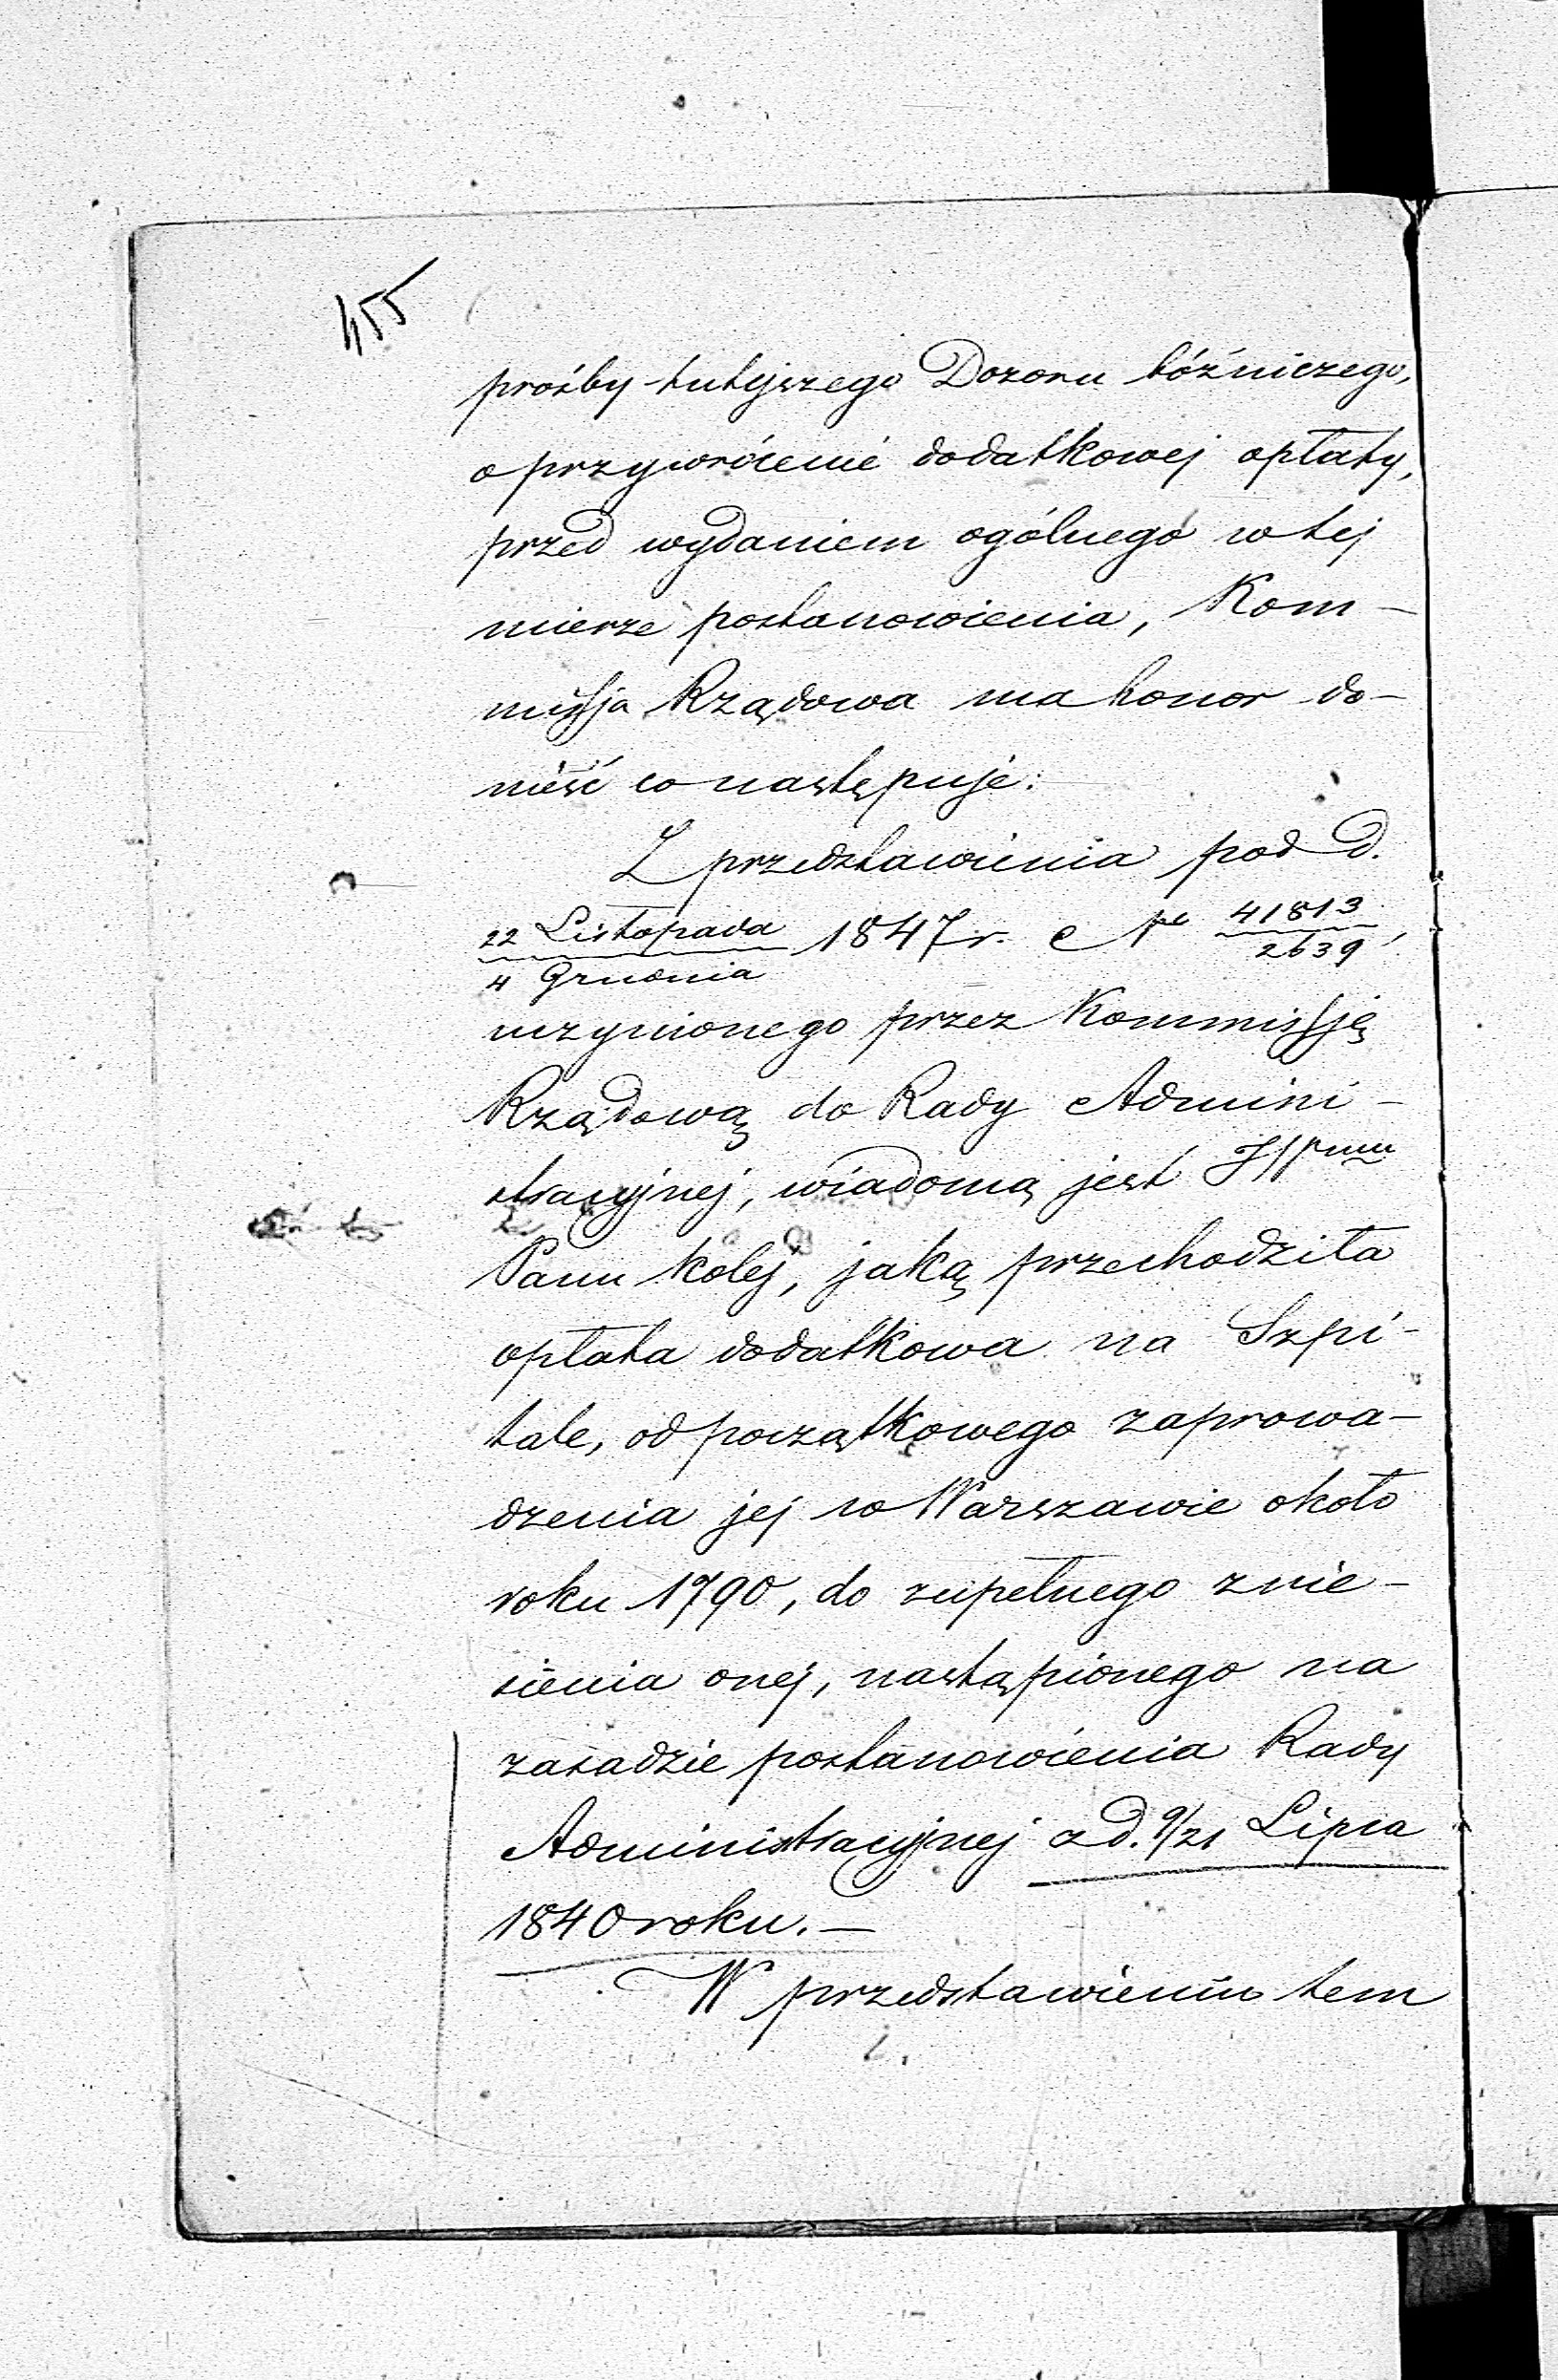 455
prośby tutejszego Dozoru bóźniczego,
o przywrócenie dodatkowej opłaty,
przed wydaniem ogólnego w tej
mierze postanowienia, Kom-
missja Rządowa ma honor do-
nieść co następuje:
Z przedstawienia pod d.
22 Listopada / 4 Grudnia 1847 r. Nr 41813/2639,
uczynionego przez Kommissję
Rządową do Rady Admini-
stracyjnej, wiadomą jest JWmu
Panu kolej, jaką przechodziła
opłata dodatkowa na Szpi-
tale, od początkowego zaprowa-
dzenia jej w Warszawie około
roku 1790, do zupełnego znie-
sienia onej, nastąpionego na
zasadzie postanowienia Rady
Administracyjnej z d. 9/21 Lipca
1840 roku. —
W przedstawieniu tem